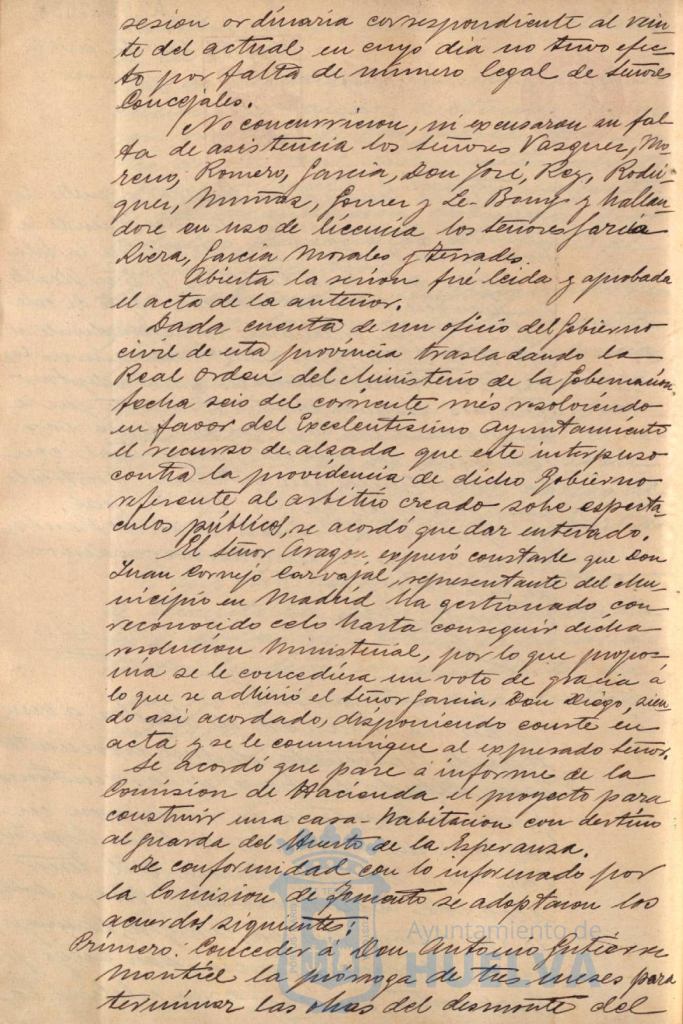 sesion ordinaria correspondiente al vein-
te del actual en cuyo dia no tuvo efec-
to por falta de número legal de Señores
Concejales.
No concurrieron, ni excusaron su fal-
ta de asistencia los señores Vasquez, Mo-
reno, Romero, Garcia, Don José, Rey, Rodri-
guez, Muñoz, Gomez y Le-Bourg y hallan-
dose en uso de licencia los señores Garcia
Riera, Garcia Morales y Terrades.
Abierta la sesion fué leida y aprobada
el acta de la anterior.
Dada cuenta de un oficio del Gobierno
civil de esta provincia trasladando la
Real orden del Ministerio de la Gobernación
fecha seis del corriente mes resolviendo
en favor del Excelentísimo Ayuntamiento
el recurso de alzada que este interpuso
contra la providencia de dicho Gobierno
referente al arbitrio creado sobre espectá-
culos públicos, se acordó quedar enterado.
El Señor Aragon expresó constarle que Don
Juan Cornejo Carvajal, representante del Mu-
nicipio en Madrid ha gestionado con
reconocido celo hasta conseguir dicha
resolucion Ministerial, por lo que propo-
nia se le concediera un voto de gracia á
lo que se adhirió el Señor Garcia, Don Diego, sien-
do asi acordado, disponiendo conste en
acta y se le comunique al expresado Señor.
Se acordó que pase á informe de la
Comision de Hacienda el proyecto para
construir una casa-habitacion con destino
al guarda del Huerto de la Esperanza.
De conformidad con lo informado por
la Comision de Fomento se adoptaron los
acuerdos siguientes:
Primero: Conceder á Don Antonio Gutiérrez
Montiel la prórroga de tres meses para
terminar las obras del desmonte del
Ayuntamiento de
HUELVA